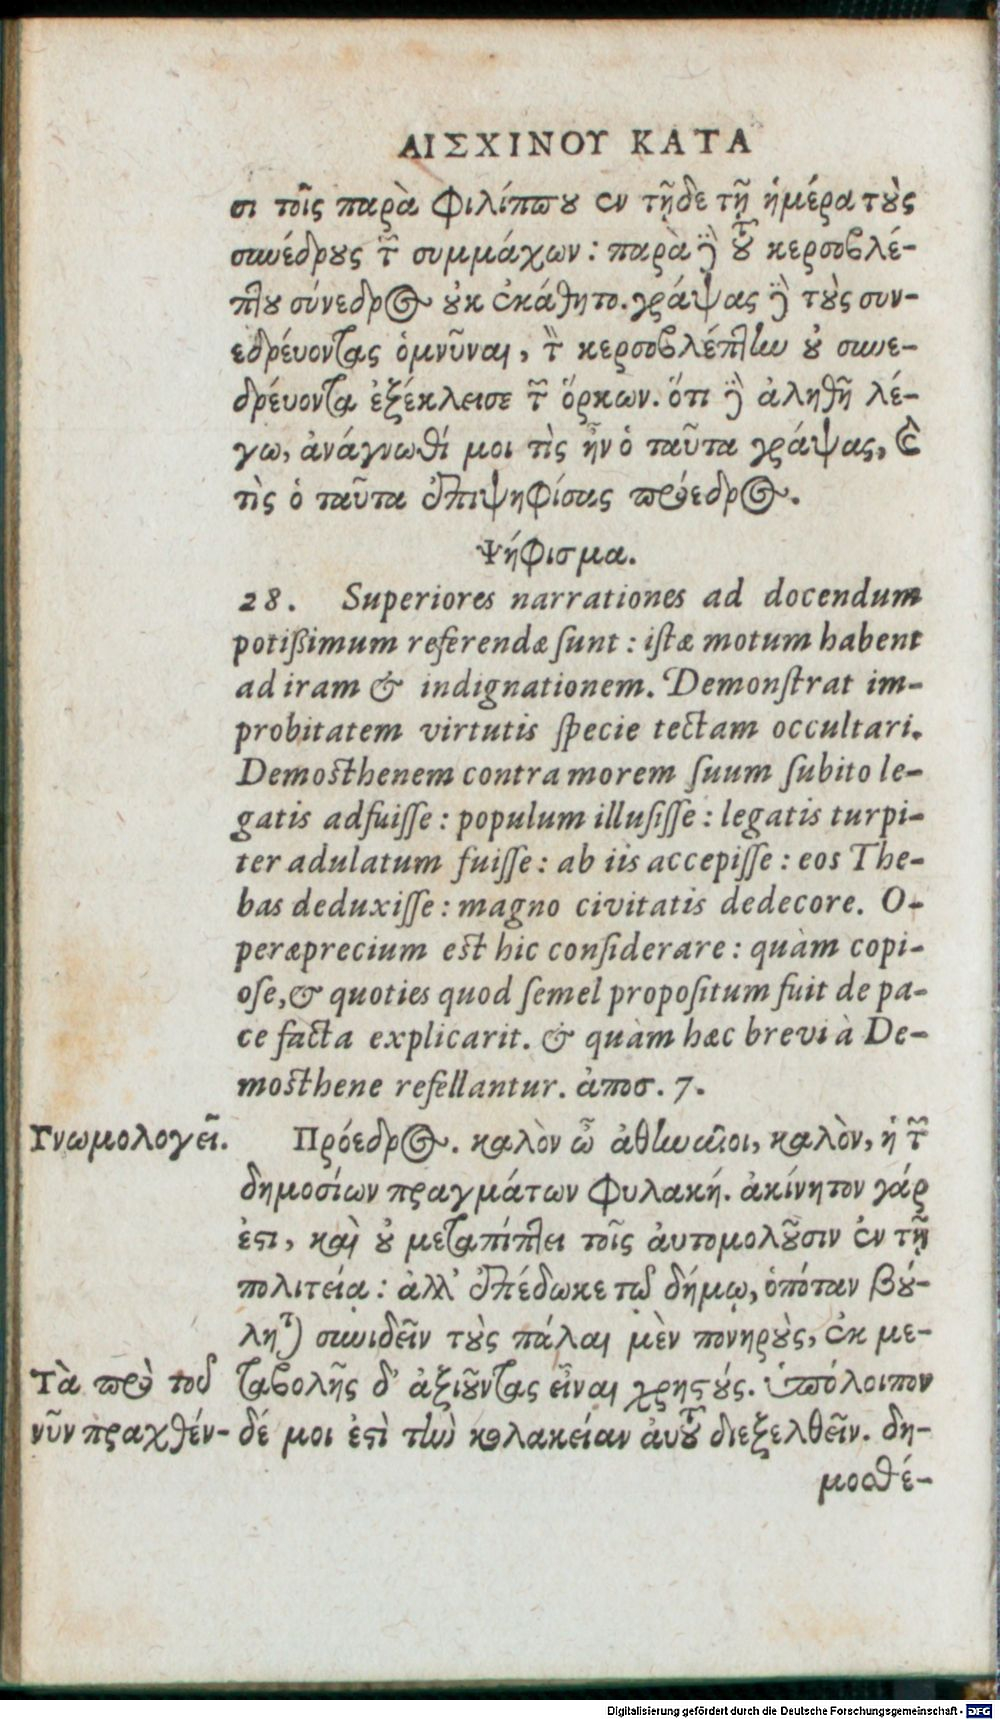 ΑΙΣΧΙΝΟΥ ΚΑΤΑ
σι τοῖς παρὰ Φιλίππου ἐν τῇδε τῇ ἡμέρα τοὺς
συνέδρους τῶν συμμάχων: παρὰ δὲ τοῦ κερσοβλέ-
πτου σύνεδρος οὐκ ἐκάθητο. γράψας δὲ τοὺς συν-
εδρεύοντας ὀμνῦναι, τὸν κερσοβλέπτην οὐ συνε-
δρεύοντα ἐξέκλεισε τῶν ὅρκων. ὅτι δὲ ἀληθῆ λέ-
γω, ἀνάγνωθί μοι τὶς ἦν ὁ ταῦτα γράψας, καὶ
τὶς ὁ ταῦτα ἐπιψηφίσας πρόεδρος.
Ψήφισμα.
28. Superiores narrationes ad docendum
potißimum referendæ sunt: istæ motum habent
ad iram & indignationem. Demonstrat im-
probitatem virtutis specie tectam occultari.
Demosthenem contra morem suum subito le-
gatis adfuisse: populum illusisse: legatis turpi-
ter adulatum fuisse: ab iis accepisse: eos The-
bas deduxisse: magno civitatis dedecore. O-
peræprecium est hic considerare: quàm copi-
ose, & quoties quod semel propositum fuit de pa-
ce facta explicarit. & quàm hæc brevi à De-
mosthene refellantur. ἀποσ. 7.
Γνωμολογεῖ. Πρόεδρος. καλὸν ὦ ἀθηναῖοι, καλὸν, ἡ τῶν
δημοσίων πραγμάτων φυλακή. ἀκίνητον γάρ
ἐστι, καὶ οὐ μεταπίπτει τοῖς αὐτομολοῦσιν ἐν τῇ
πολιτείᾳ: ἀλλ' ἀπέδωκε τῷ δήμῳ, ὁπόταν βού-
ληται συνιδεῖν τοὺς πάλαι μὲν πονηροὺς, ἐκ με-
Τὰ πρὸ τοῦ ταβολῆς δ' ἀξιοῦντας εἶναι χρηστούς. ὑπόλοιπον
νῦν πραχθέν- δέ μοι ἐστὶ τὴν κολακείαν αὐτοῦ διεξελθεῖν. δη-
μοσθέ-
Digitalisierung gefördert durch die Deutsche Forschungsgemeinschaft - DFG